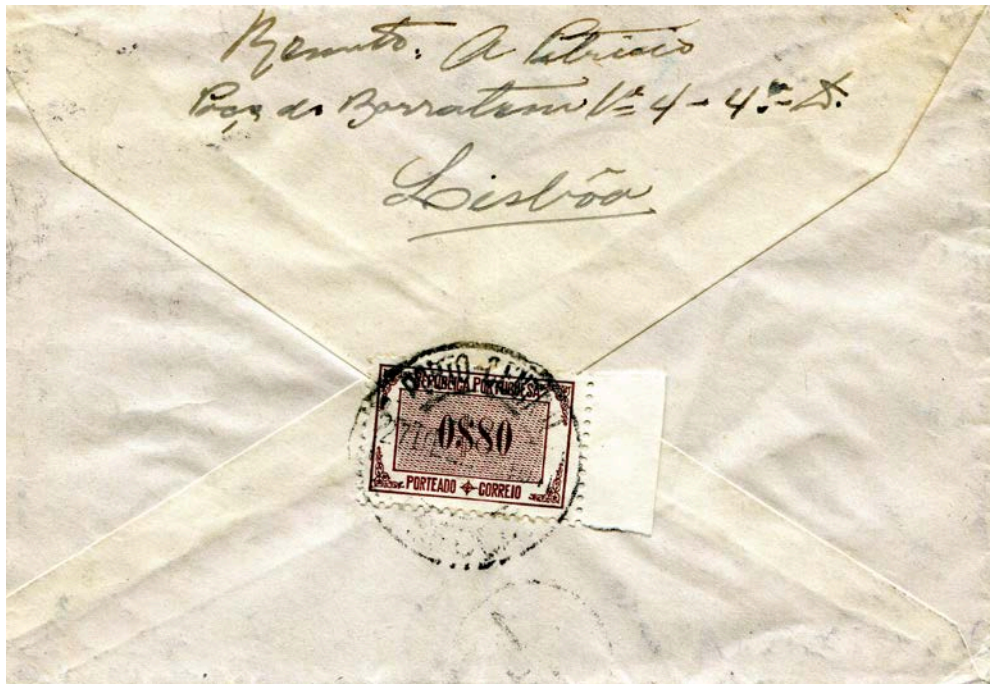 Remete. A Patricio
Poço do Borratem Nº 4 - 4º - D.
Lisbôa
REPUBLICA PORTUGUESA
0$80
PORTEADO CORREIO